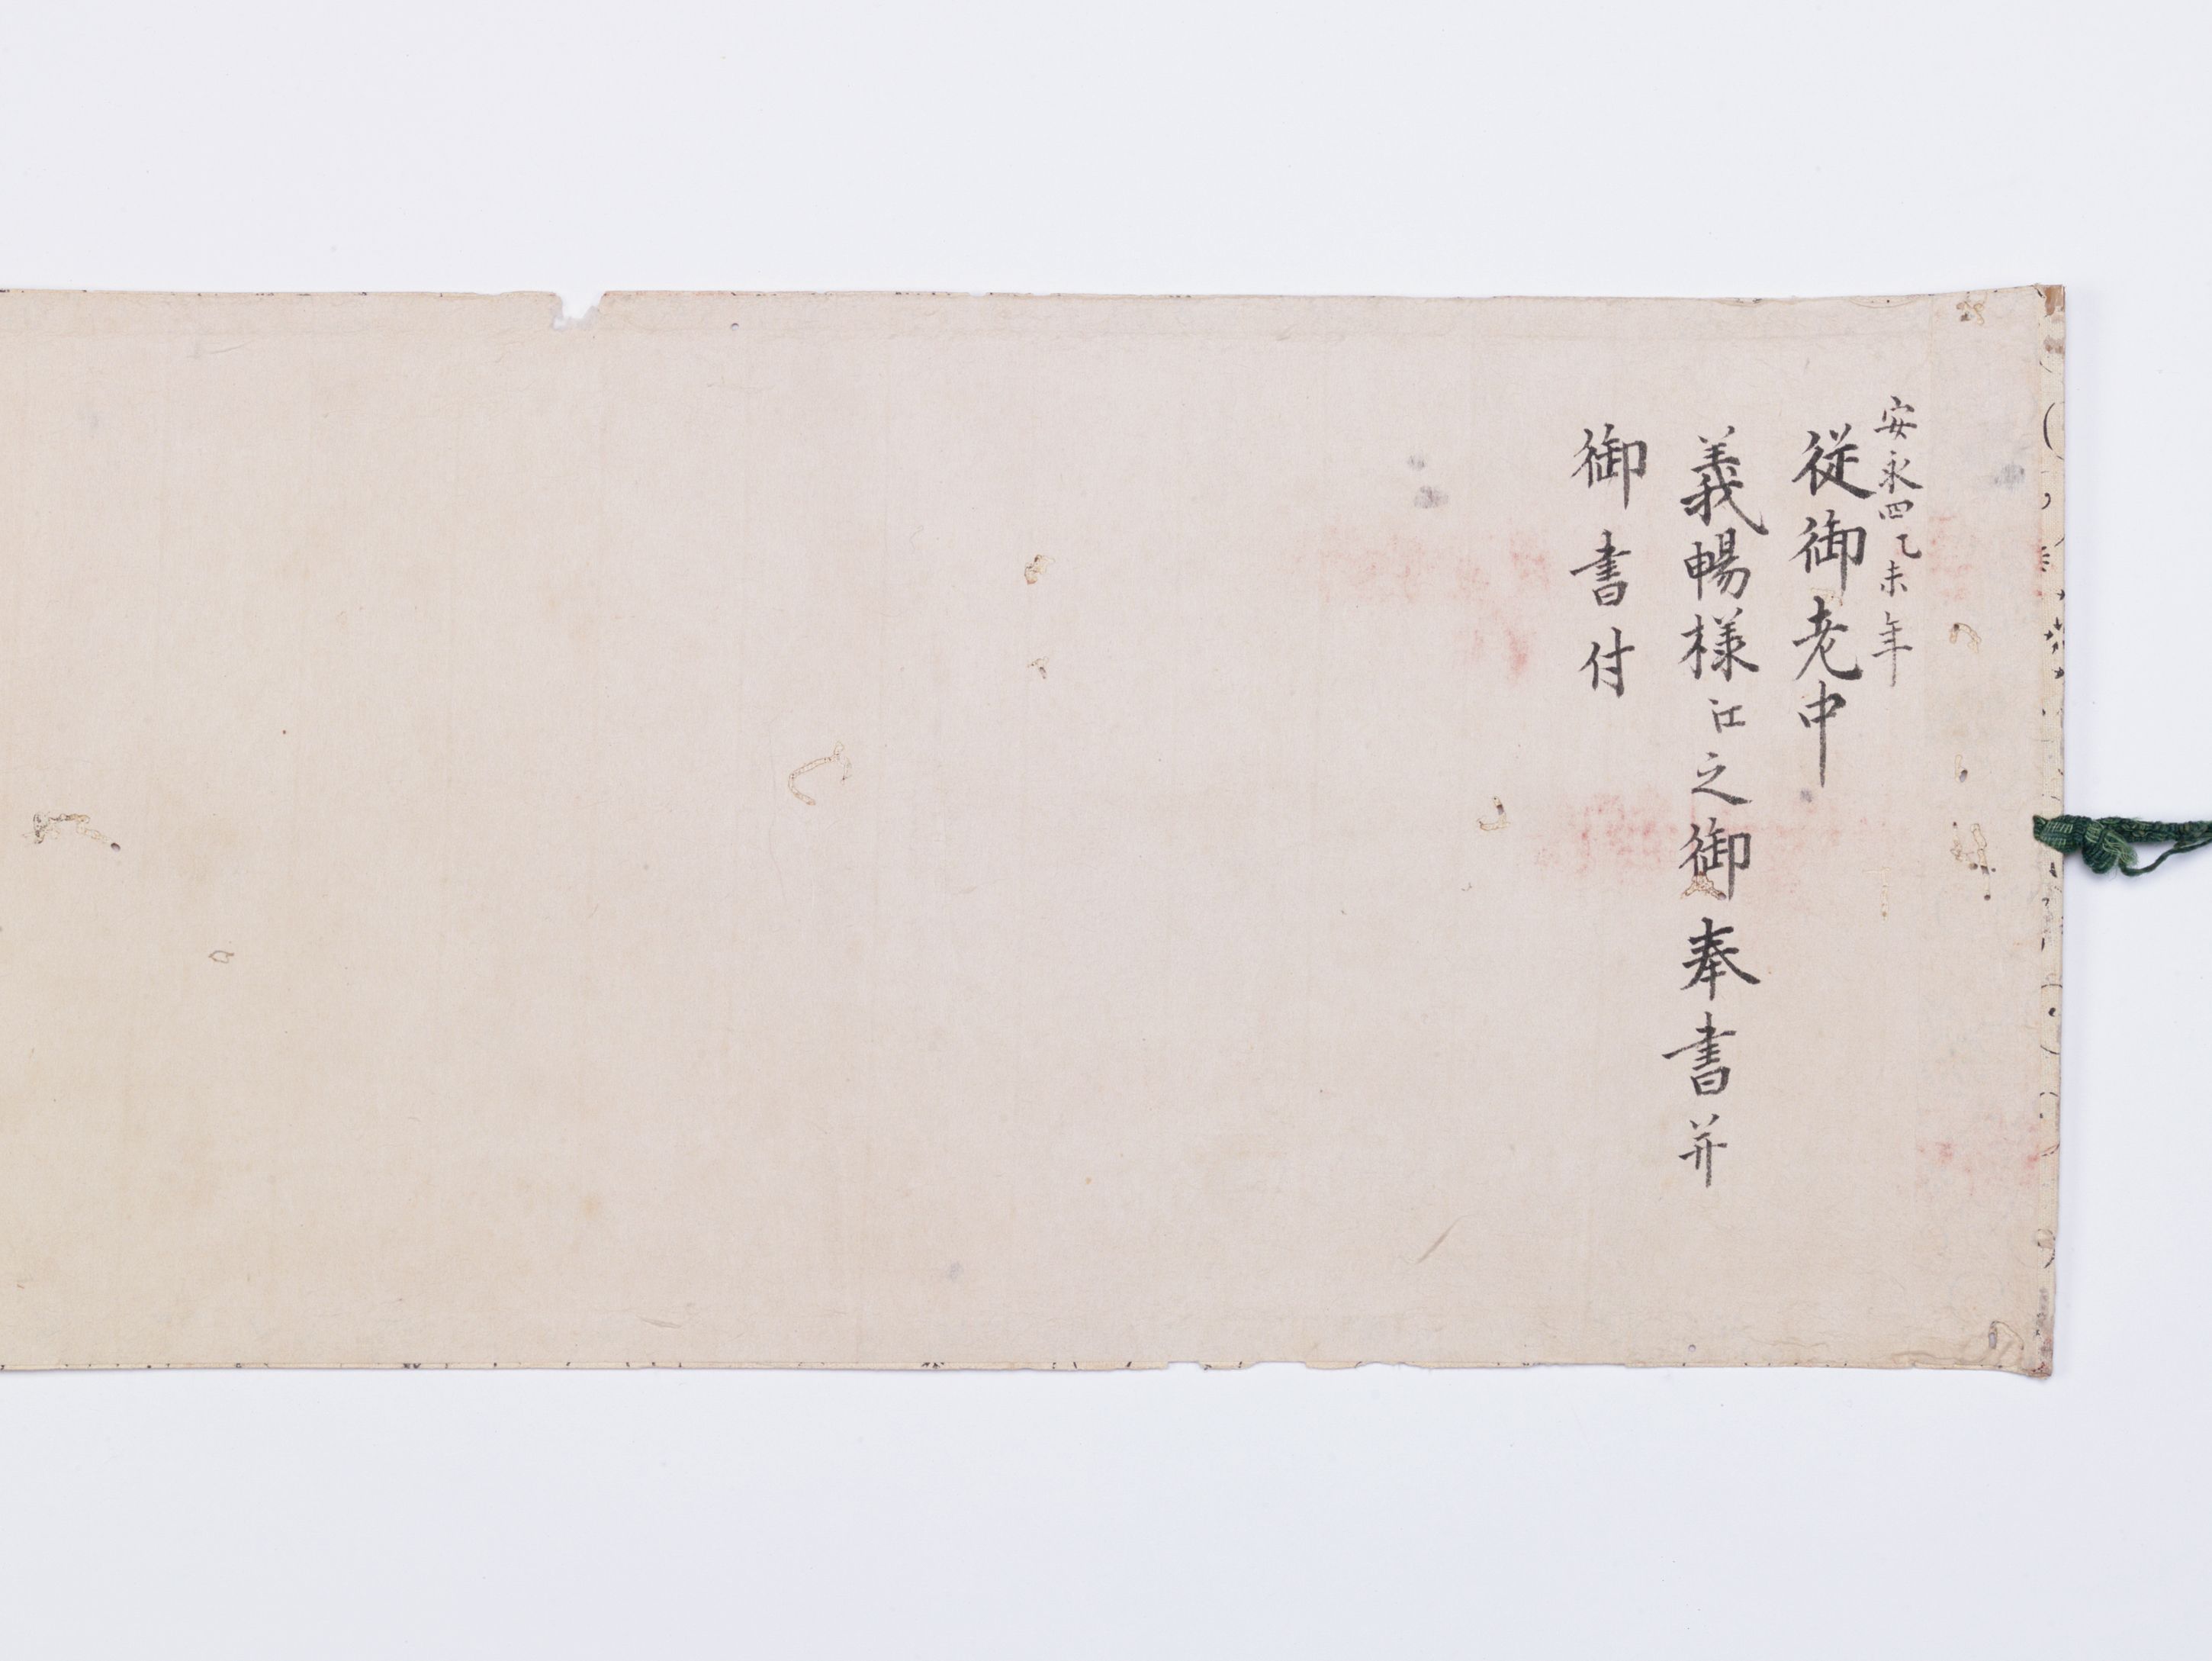 安永四乙未年
従御老中
義暢様江之御奉書并
御書付